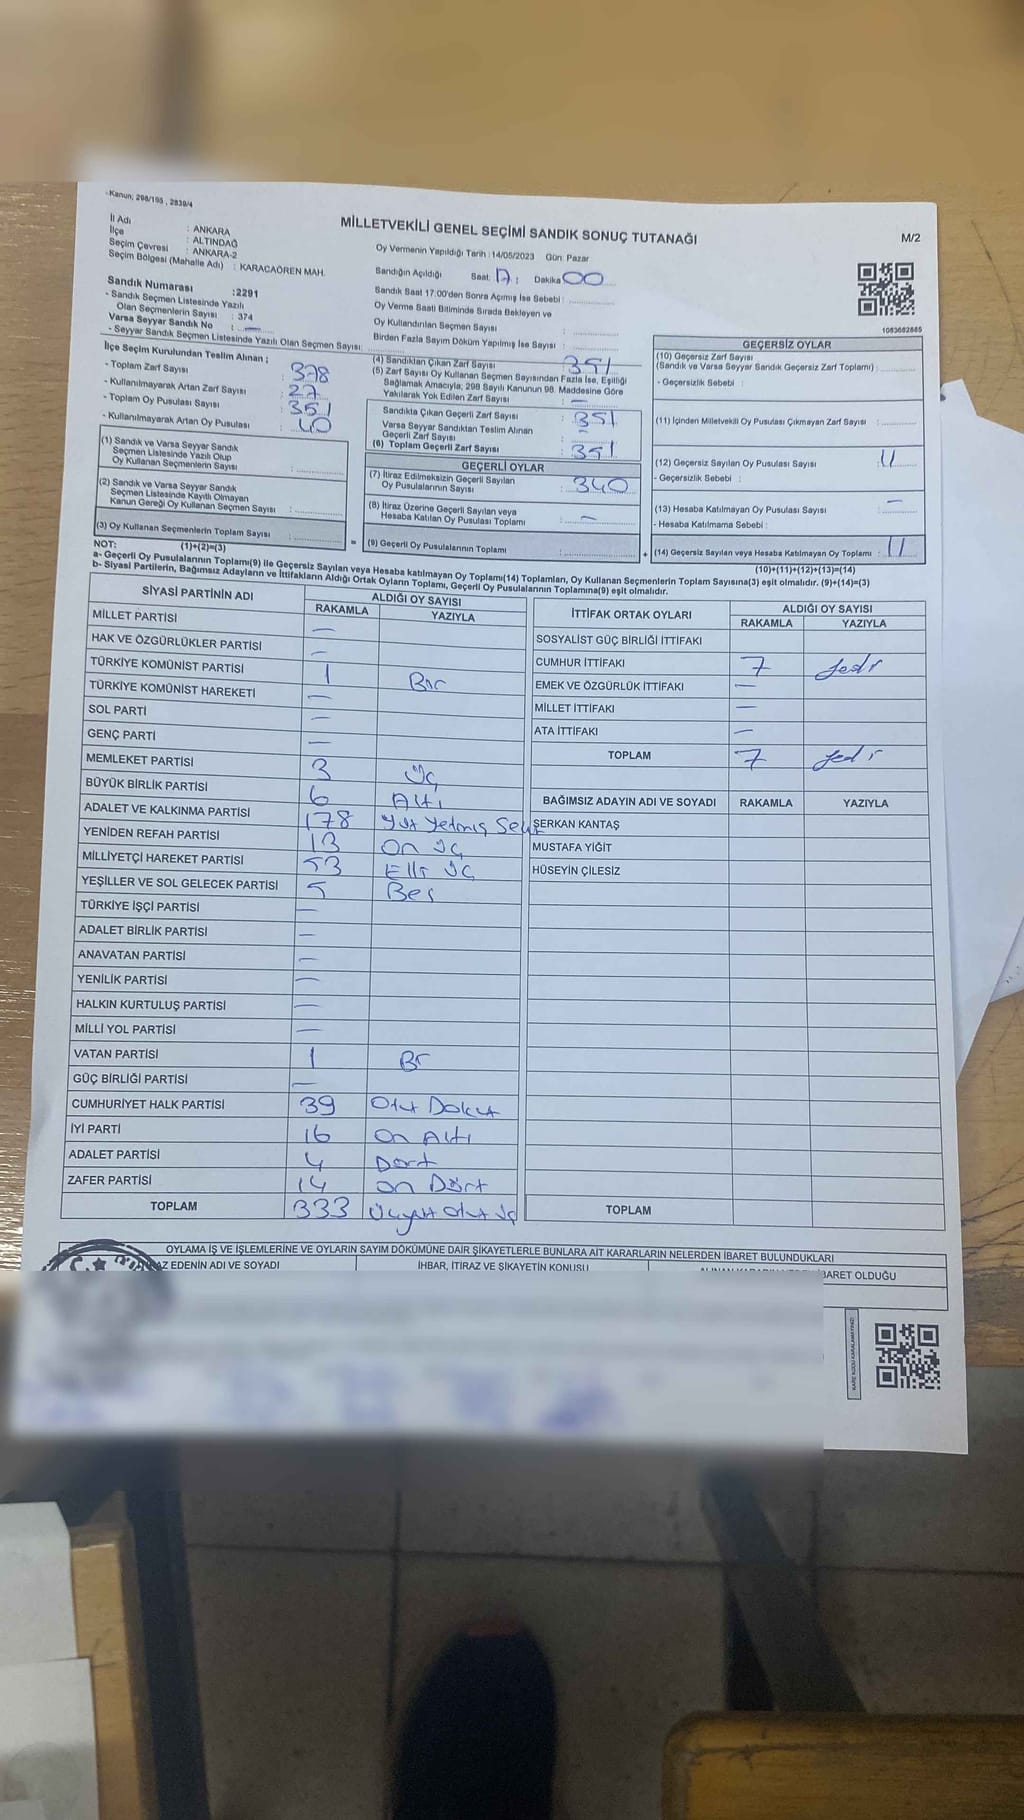 - Kanun, 298/105 , 2839/4
MİLLETVEKİLİ GENEL SEÇİMİ SANDIK SONUÇ TUTANAĞI
M/2
İl Adı : ANKARA
İlçe : ALTINDAĞ
Seçim Çevresi : ANKARA-2
Seçim Bölgesi (Mahalle Adı) : KARACAÖREN MAH.
Oy Vermenin Yapıldığı Tarih :14/05/2023 Gün: Pazar
Sandığın Açıldığı Saat: 17 : Dakika 00
Sandık Saat 17:00'den Sonra Açımış İse Sebebi :
Oy Verme Saati Bitiminde Sırada Bekleyen ve
Oy Kullandırılan Seçmen Sayısı :
Birden Fazla Sayım Döküm Yapılmış İse Sayısı :
Sandık Numarası :2291
- Sandık Seçmen Listesinde Yazılı
Olan Seçmenlerin Sayısı : 374
Varsa Seyyar Sandık No : —
- Seyyar Sandık Seçmen Listesinde Yazılı Olan Seçmen Sayısı:
İlçe Seçim Kurulundan Teslim Alınan ;
- Toplam Zarf Sayısı : 378
- Kullanılmayarak Artan Zarf Sayısı : 27
- Toplam Oy Pusulası Sayısı : 351
- Kullanılmayarak Artan Oy Pusulası : 40
(1) Sandık ve Varsa Seyyar Sandık
Seçmen Listesinde Yazılı Olup
Oy Kullanan Seçmenlerin Sayısı :
(2) Sandık ve Varsa Seyyar Sandık
Seçmen Listesinde Kayıtlı Olmayan
Kanun Gereği Oy Kullanan Seçmen Sayısı :
(3) Oy Kullanan Seçmenlerin Toplam Sayısı :
(1)+(2)=(3)
(4) Sandıktan Çıkan Zarf Sayısı : 351
(5) Zarf Sayısı Oy Kullanan Seçmen Sayısından Fazla İse, Eşitliği
Sağlamak Amacıyla; 298 Sayılı Kanunun 98. Maddesine Göre
Yakılarak Yok Edilen Zarf Sayısı : —
Sandıkta Çıkan Geçerli Zarf Sayısı : 351
Varsa Seyyar Sandıktan Teslim Alınan
Geçerli Zarf Sayısı :
(6) Toplam Geçerli Zarf Sayısı : 351
GEÇERLİ OYLAR
(7) İtiraz Edilmeksizin Geçerli Sayılan
Oy Pusulalarının Sayısı : 340
(8) İtiraz Üzerine Geçerli Sayılan veya
Hesaba Katılan Oy Pusulası Toplamı : —
= (9) Geçerli Oy Pusulalarının Toplamı : +
1083682885
GEÇERSİZ OYLAR
(10) Geçersiz Zarf Sayısı
(Sandık ve Varsa Seyyar Sandık Geçersiz Zarf Toplamı) :
- Geçersizlik Sebebi :
(11) İçinden Milletvekili Oy Pusulası Çıkmayan Zarf Sayısı :
(12) Geçersiz Sayılan Oy Pusulası Sayısı : 11
- Geçersizlik Sebebi :
(13) Hesaba Katılmayan Oy Pusulası Sayısı : —
- Hesaba Katılmama Sebebi :
(14) Geçersiz Sayılan veya Hesaba Katılmayan Oy Toplamı : 11
(10)+(11)+(12)+(13)=(14)
NOT:
a- Geçerli Oy Pusulalarının Toplamı(9) ile Geçersiz Sayılan veya Hesaba katılmayan Oy Toplamı(14) Toplamları, Oy Kullanan Seçmenlerin Toplam Sayısına(3) eşit olmalıdır. (9)+(14)=(3)
b- Siyasi Partilerin, Bağımsız Adayların ve İttifakların Aldığı Ortak Oyların Toplamı, Geçerli Oy Pusulalarının Toplamına(9) eşit olmalıdır.
SİYASİ PARTİNİN ADI ALDIĞI OY SAYISI
RAKAMLA YAZIYLA
MİLLET PARTİSİ —
HAK VE ÖZGÜRLÜKLER PARTİSİ —
TÜRKİYE KOMÜNİST PARTİSİ 1 Bir
TÜRKİYE KOMÜNİST HAREKETİ —
SOL PARTİ —
GENÇ PARTİ —
MEMLEKET PARTİSİ 3 Üç
BÜYÜK BİRLİK PARTİSİ 6 Altı
ADALET VE KALKINMA PARTİSİ 178 Yüz Yetmiş
YENİDEN REFAH PARTİSİ 13 On Üç
MİLLİYETÇİ HAREKET PARTİSİ 53 Elli Üç
YEŞİLLER VE SOL GELECEK PARTİSİ 5 Beş
TÜRKİYE İŞÇİ PARTİSİ —
ADALET BİRLİK PARTİSİ —
ANAVATAN PARTİSİ —
YENİLİK PARTİSİ —
HALKIN KURTULUŞ PARTİSİ —
MİLLİ YOL PARTİSİ —
VATAN PARTİSİ 1 Bir
GÜÇ BİRLİĞİ PARTİSİ —
CUMHURİYET HALK PARTİSİ 39 Otuz Dokuz
İYİ PARTİ 16 On Altı
ADALET PARTİSİ 4 Dört
ZAFER PARTİSİ 14 On Dört
TOPLAM 333 Üçyüz Otuz Üç
İTTİFAK ORTAK OYLARI ALDIĞI OY SAYISI
RAKAMLA YAZIYLA
SOSYALİST GÜÇ BİRLİĞİ İTTİFAKI
CUMHUR İTTİFAKI 7 Yedi
EMEK VE ÖZGÜRLÜK İTTİFAKI —
MİLLET İTTİFAKI —
ATA İTTİFAKI —
TOPLAM 7 Yedi
BAĞIMSIZ ADAYIN ADI VE SOYADI RAKAMLA YAZIYLA
SERKAN KANTAŞ
MUSTAFA YİĞİT
HÜSEYİN ÇİLESİZ
TOPLAM
OYLAMA İŞ VE İŞLEMLERİNE VE OYLARIN SAYIM DÖKÜMÜNE DAİR ŞİKAYETLERLE BUNLARA AİT KARARLARIN NELERDEN İBARET BULUNDUKLARI
EDENİN ADI VE SOYADI İHBAR, İTİRAZ VE ŞİKAYETİN KONUSU OLDUĞU